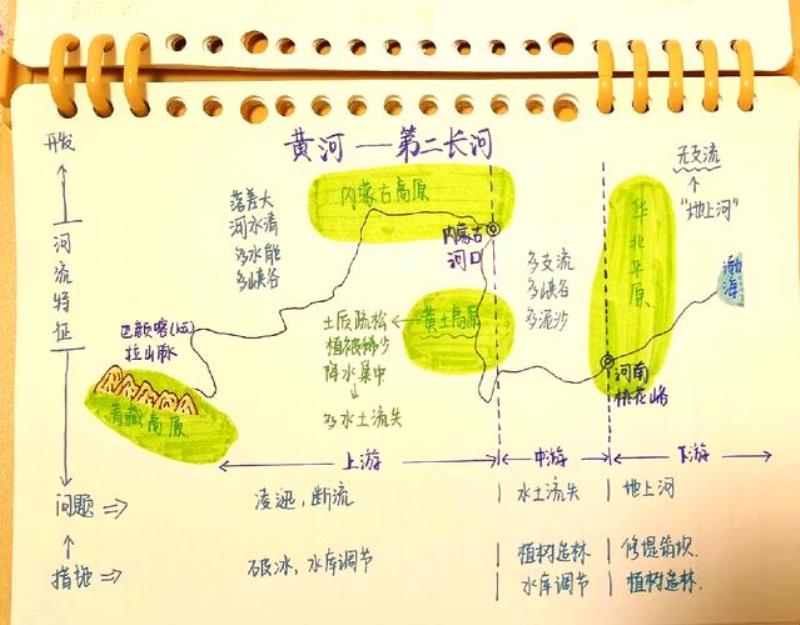 黄河 — 第二长河
开发
河流特征
问题 =>
措施 =>
落差大
河水清
多水能
多峡谷
内蒙古高原
内蒙古
河口
多支流
多峡谷
多泥沙
华北平原
无支流
"地上河"
渤海
巴颜喀(la)
拉山脉
青藏高原
土质疏松
植被稀少
降水集中
多水土流失
黄土高原
河南
桃花峪
上游
中游
下游
凌迅,断流
水土流失
地上河
破冰,水库调节
植树造林
水库调节
修堤筑坝.
植树造林.